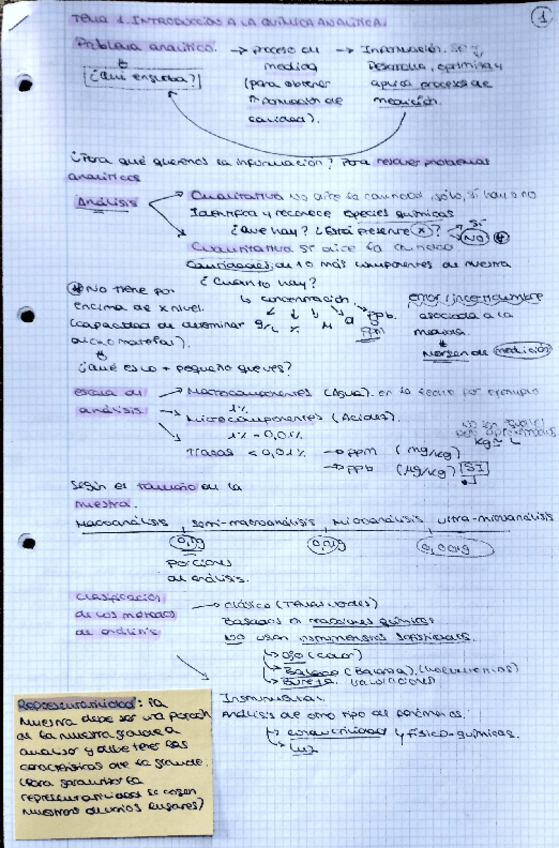 TEMA 1. INTRODUCCIÓN A LA QUÍMICA ANALÍTICA.
1
Problema analítico. → proceso de → Información. Se
medida
Desarrolla, optimiza y
[¿Qué engloba?]
(para obtener
aplica procesos de
información de
medición.
calidad).
¿Para qué queremos la información? Para resolver problemas
analíticos
Análisis
Cualitativa No dice la cantidad, sólo, si hay o no
Identifica y reconoce especies químicas
¿Que hay? ¿Está presente (x)? → Sí
NO
Cuantitativa Sí dice la cantidad
Cantidades de 1 o más componentes de muestra
¿Cuánto hay?
No tiene por
↳ concentración
error/incertidumbre
encima de x nivel.
ppb.
asociada a la
(capacidad de determinar
g/L % M
ppm
medida.
Margen de medición
¿Qué es lo + pequeño que ves?
escala de
análisis
→ Macrocomponentes (Agua). en la leche por ejemplo
1%
→ Microcomponentes (Acidez).
1% - 0,01%
Kg ≈ L
Trazas < 0,01% → ppm (mg/kg)
→ ppb (µg/kg) [SI]
Según el tamaño de la
muestra.
Macroanálisis Semi-macroanálisis Microanálisis ultra-microanálisis
0,1g
0,01g
0,001g
porciones
de análisis.
Clasificación
de los métodos
de análisis
→ clásico
Basados en reacciones químicas
No usan instrumentos sofisticados.
↳ ojo (color)
↳ Balanza (Balanza).
↳ Bureta.
Instrumental.
Análisis de otro tipo de fenómenos.
↳ conductividad y físico-químicas.
↳ luz
Representatividad: la
muestra debe ser una porción
de la muestra grande a
analizar y debe tener las
características de la grande.
(Para garantizar la
representatividad se cogen
muestras de varios lugares)